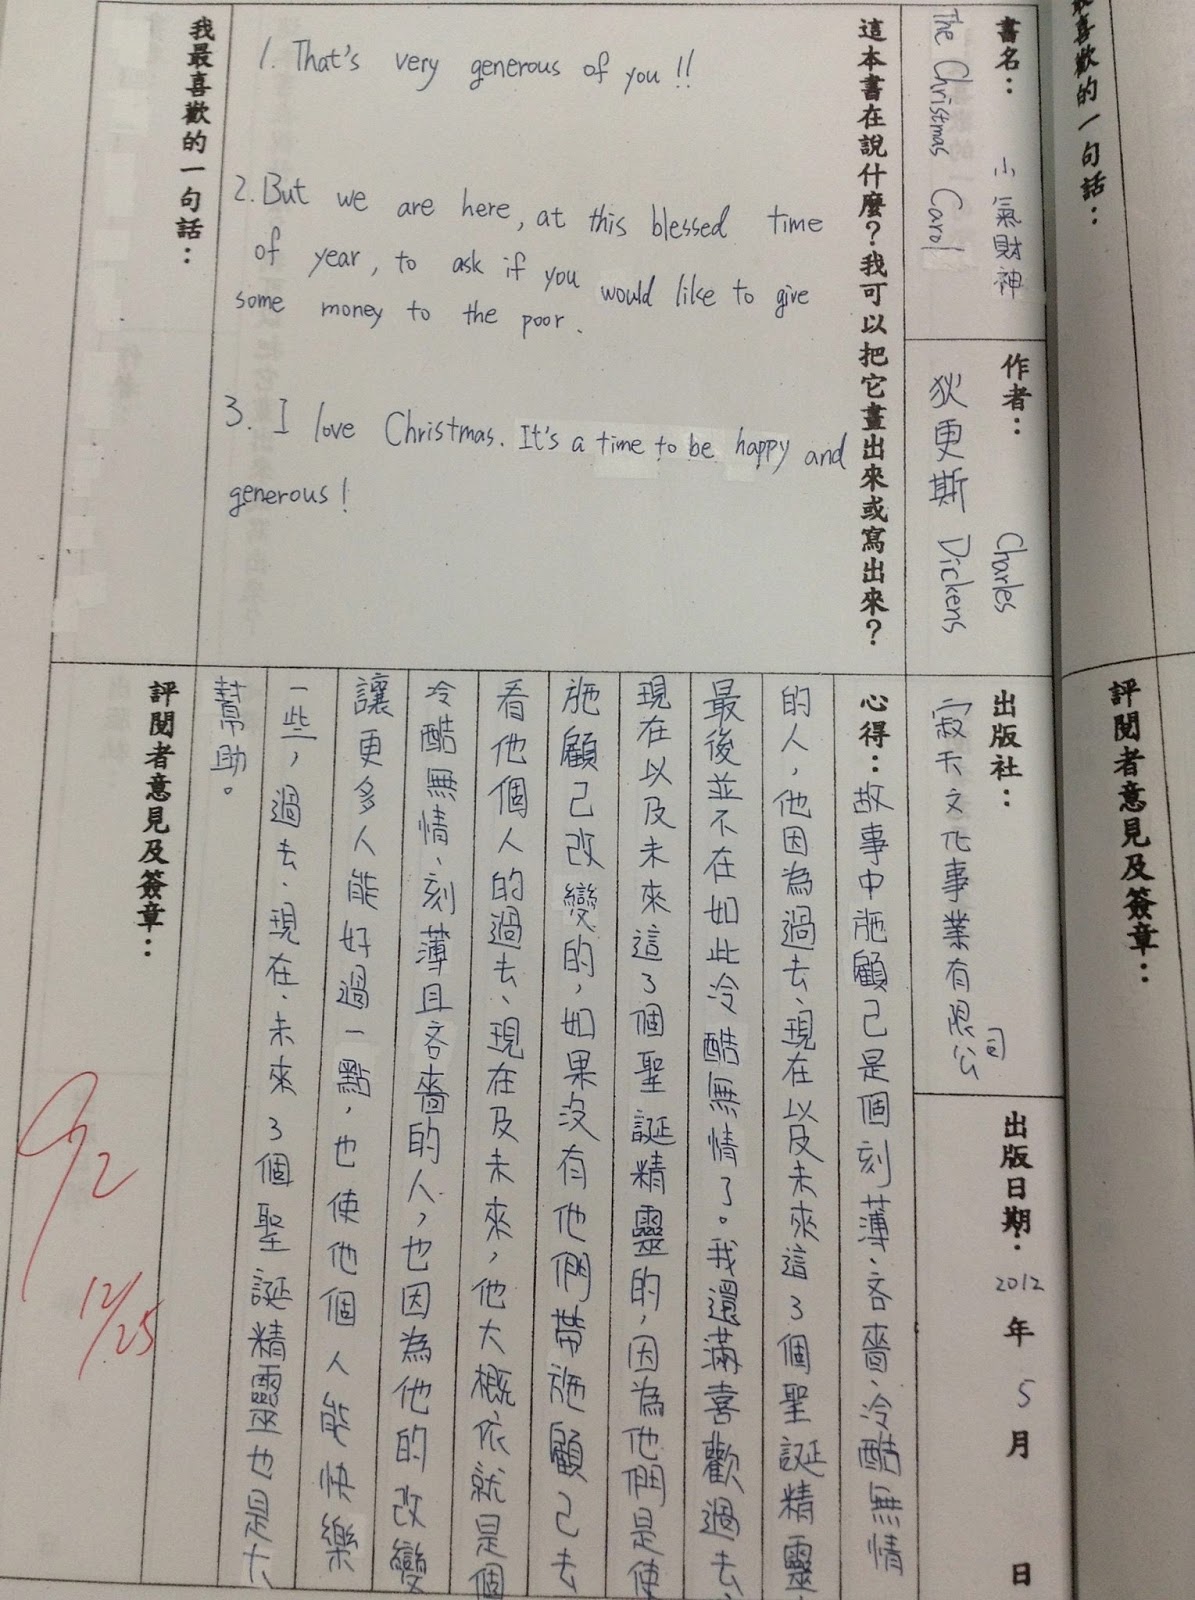 最喜歡的一句話：
評閱者意見及簽章：
書名：
小氣財神
The Christmas Carol
作者：
Charles
狄更斯 Dickens
出版社：
寂天文化事業有限公司
出版日期：2012年5月 日
這本書在說什麼？我可以把它畫出來或寫出來？
1. That's very generous of you !!
2. But we are here, at this blessed time
of year, to ask if you would like to give
some money to the poor.
3. I love Christmas. It's a time to be happy and
generous!
心得：故事中施顧己是個刻薄、吝嗇、冷酷無情
的人，他因為過去、現在以及未來這3個聖誕精靈，
最後並不在如此冷酷無情了。我還滿喜歡過去、
現在以及未來這3個聖誕精靈的，因為他們是使
施顧己改變的，如果沒有他們帶施顧己去
看他個人的過去、現在及未來，他大概依就是個
冷酷無情、刻薄且吝嗇的人，也因為他的改變
讓更多人能好過一點，也使他個人能快樂
一些，過去、現在、未來3個聖誕精靈也是大
幫助。
我最喜歡的一句話：
評閱者意見及簽章：
92
12/25